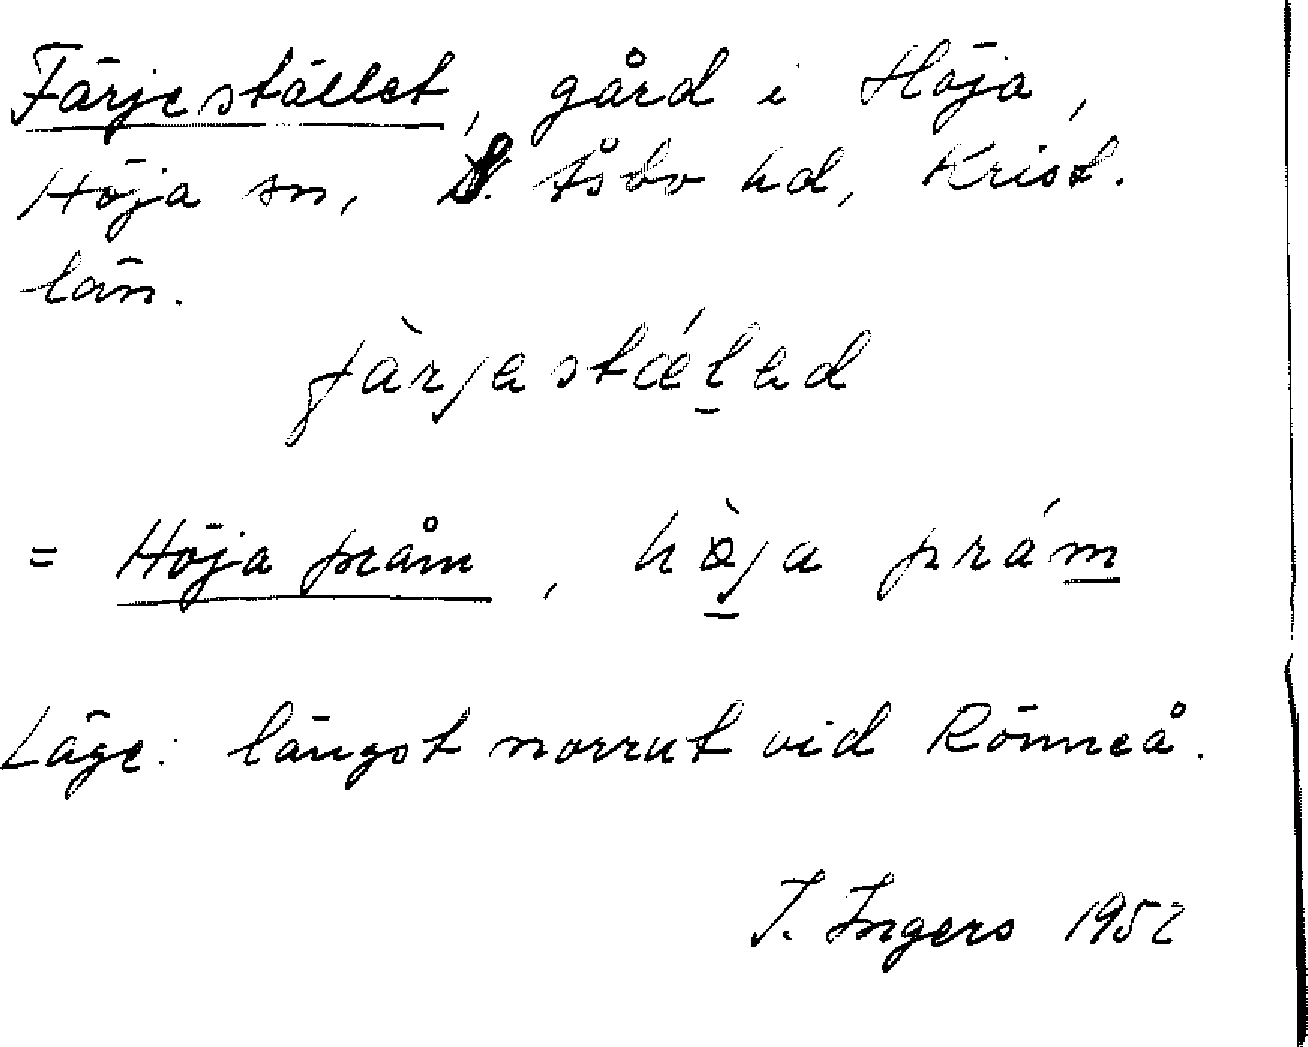 Färjestället, gård i Höja,
Höja sn, S. Åsbo hd, Krist.
län.
fàrjastǽlad
= Höja pråm, hø̀ja prám
Läge: längst norrut vid Rönneå.
I. Ingers 1952